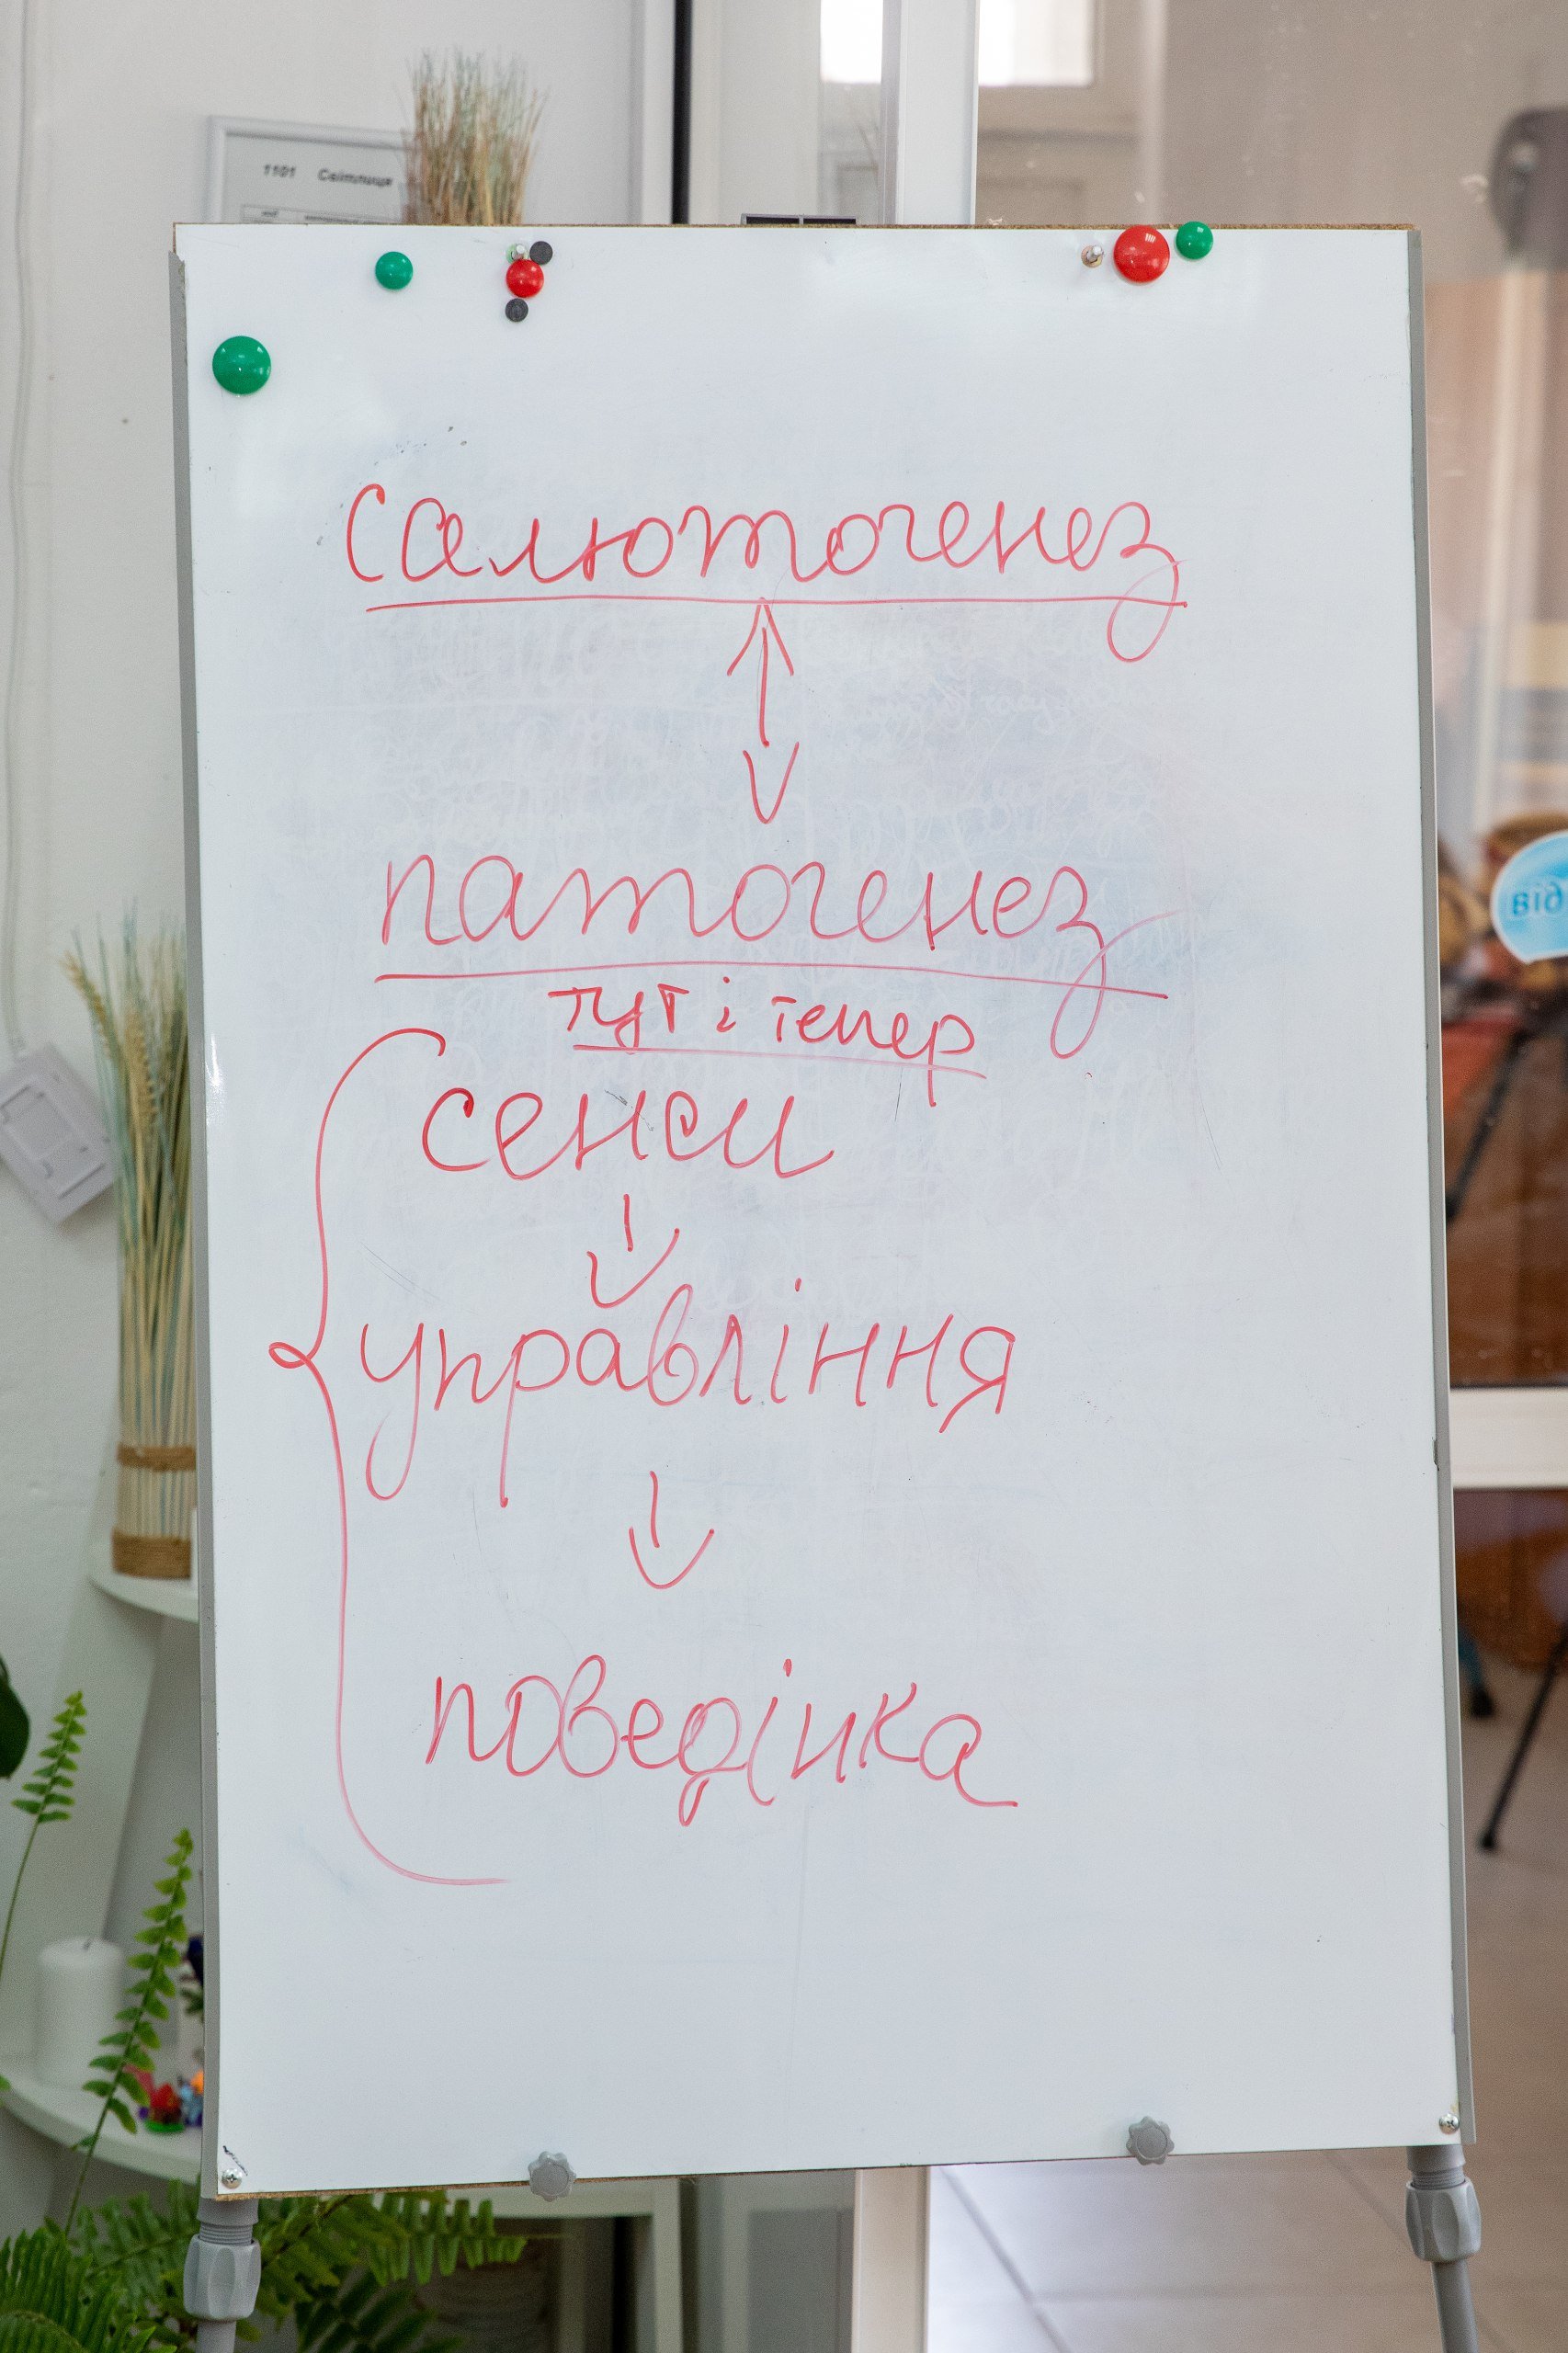 1101 Світлиця
салютогенез
патогенез
тут і тепер
сенси
управління
поведінка